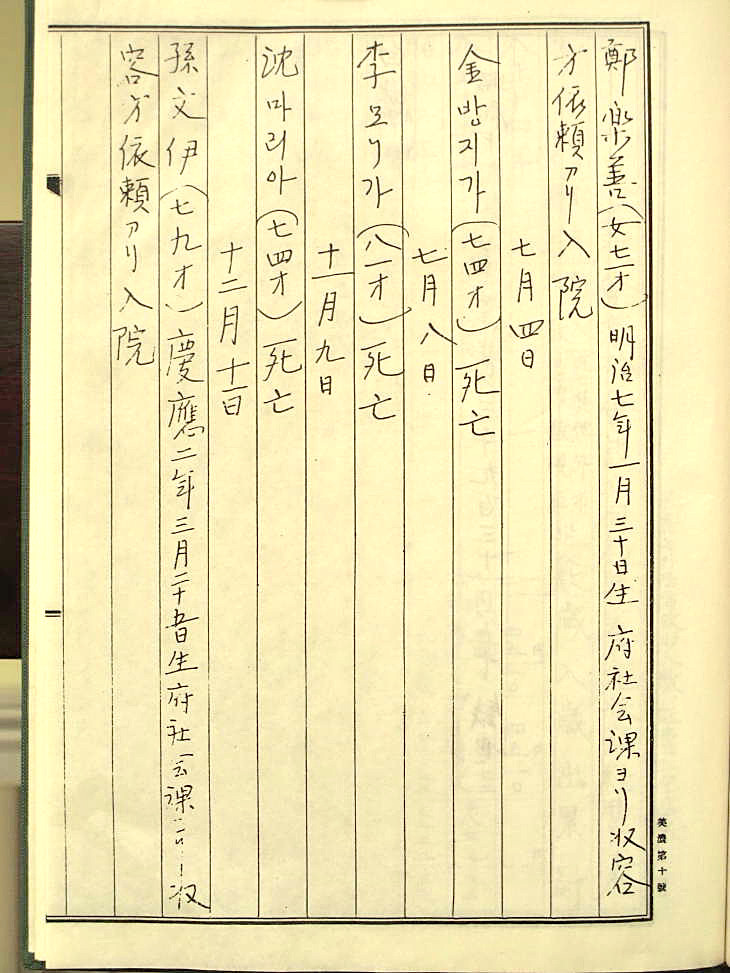 鄭樂善(女七一才)明治七年一月三十日生 府社会課ヨリ收容
方依賴アリ入院
七月四日
金방지가(七四才)死亡
七月八日
李모니가(八一才)死亡
十一月九日
沈마리아(七四才)死亡
十二月十一日
孫文伊(七九才)慶應二年三月二十五日生府社会課ヨリ收
容方依賴アリ入院
美濃第十號